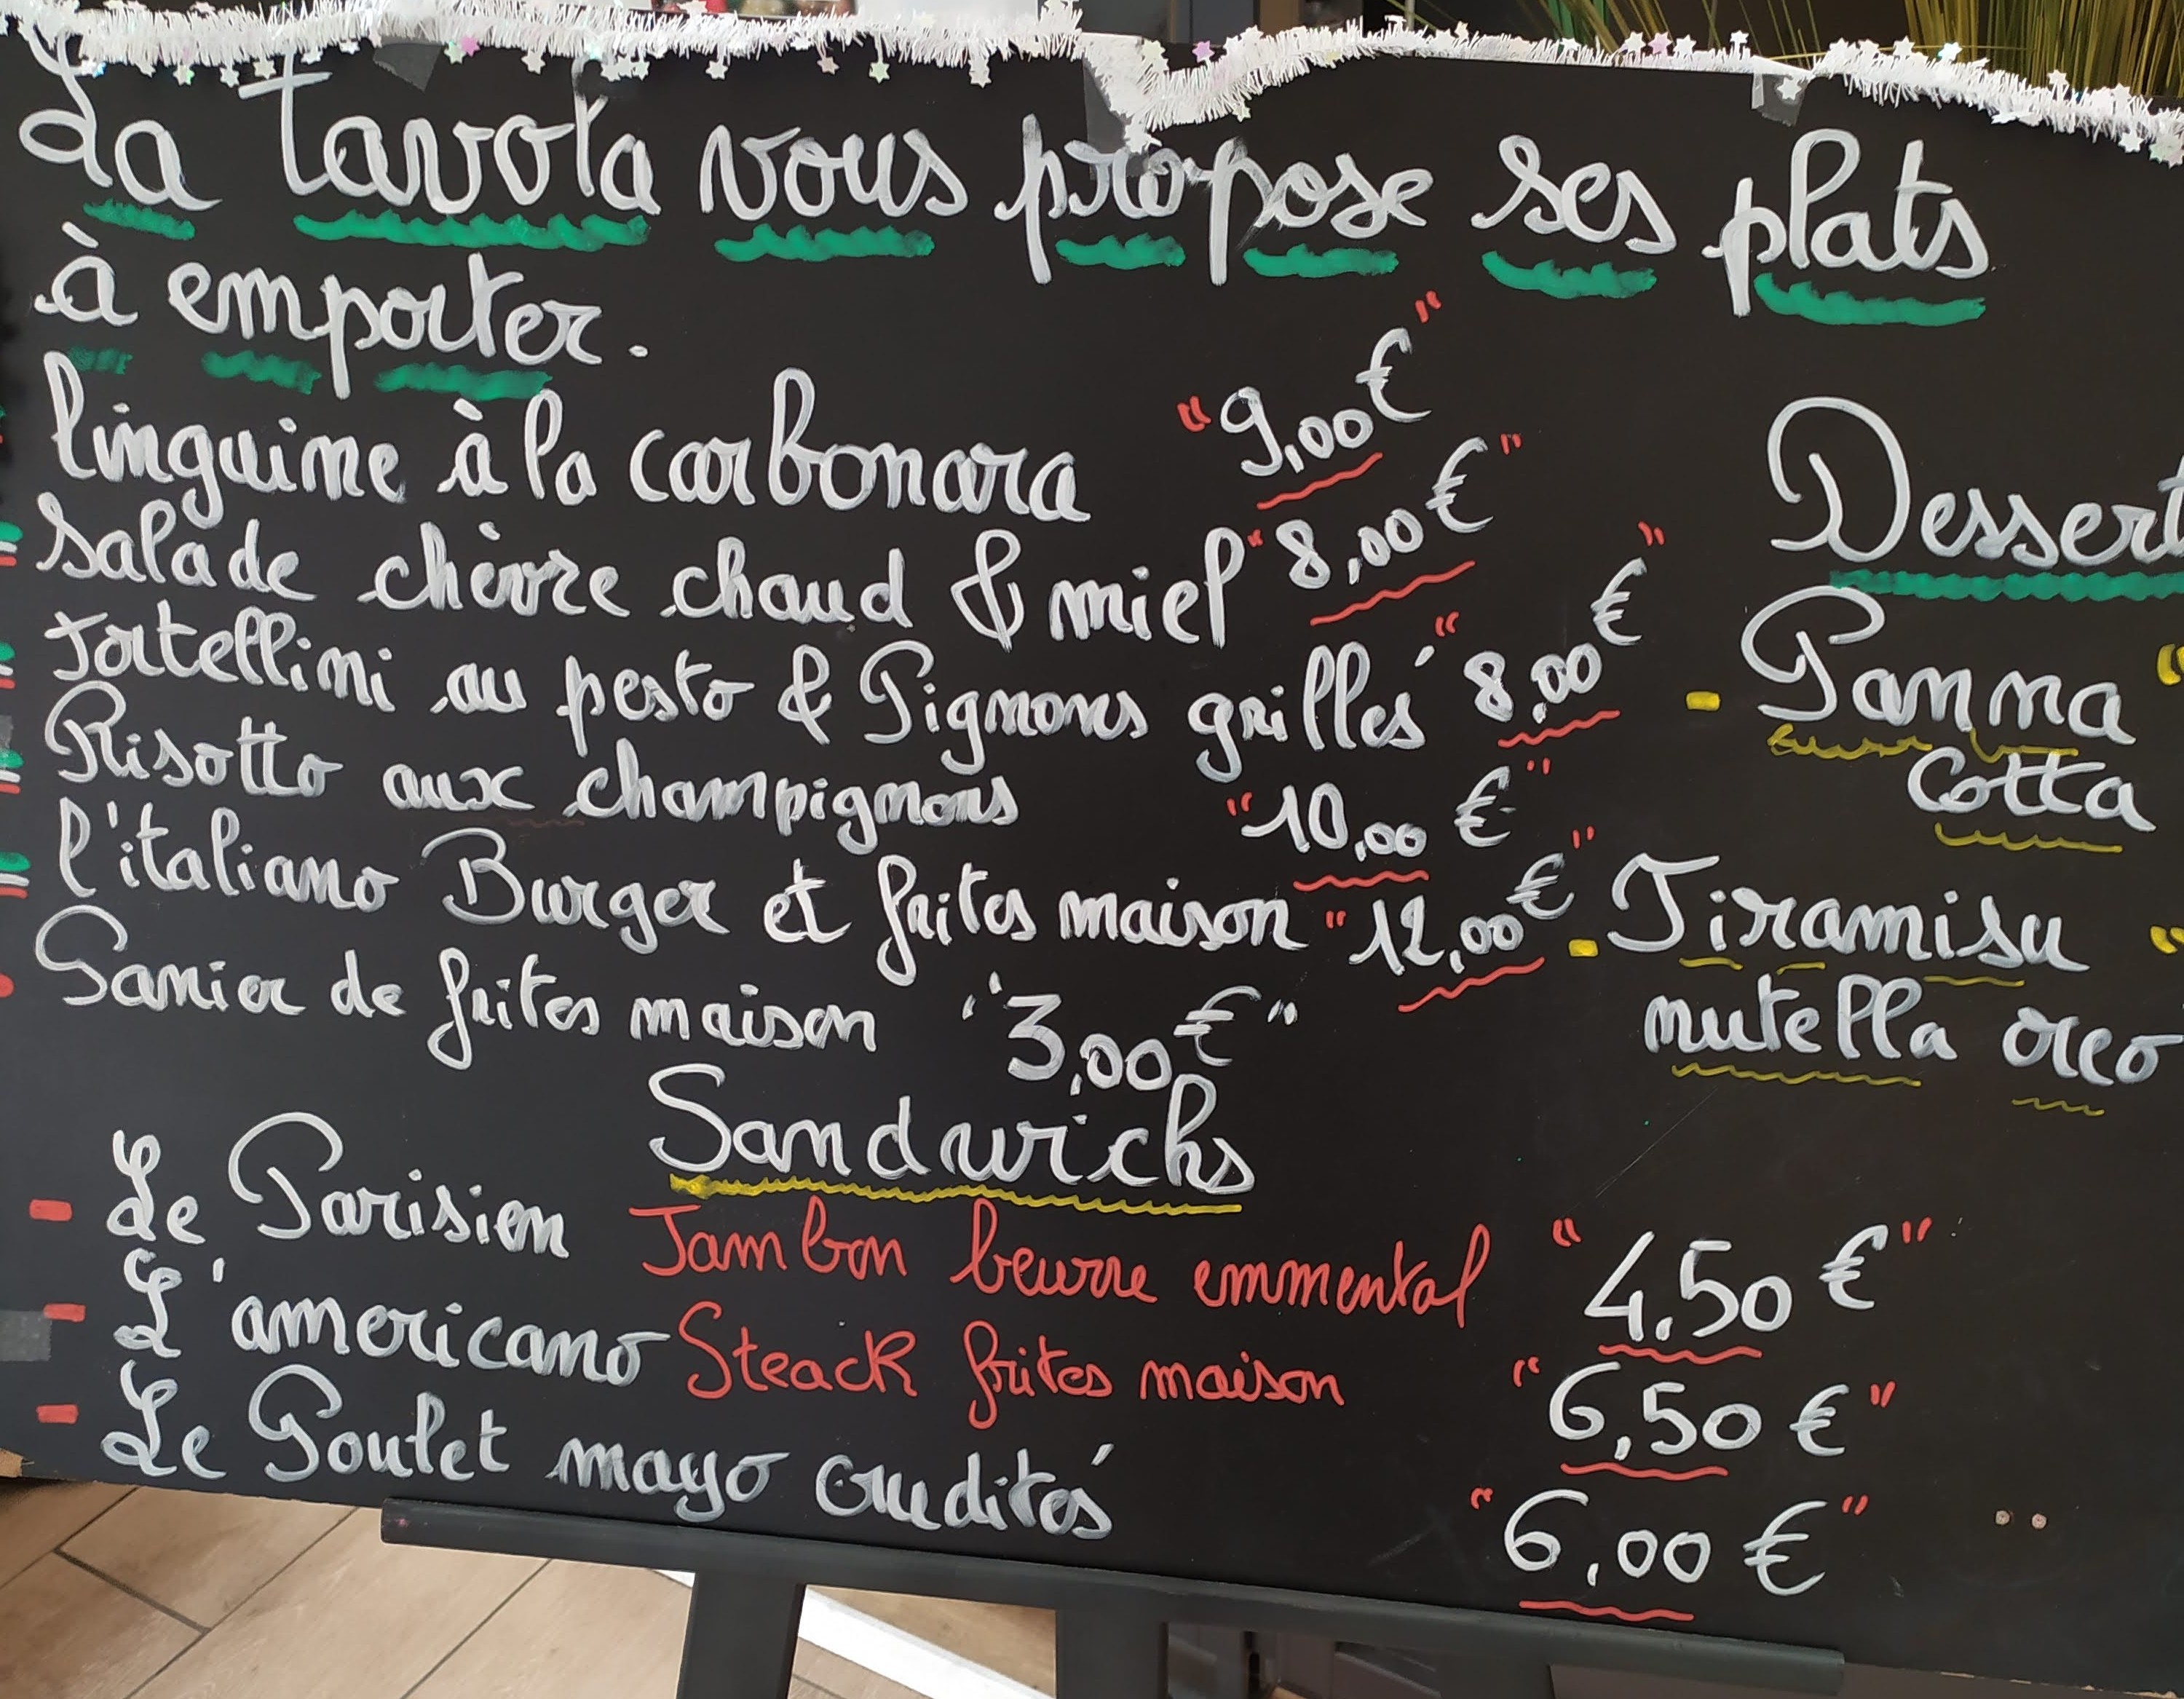 La Tavola vous propose ses plats
à emporter.
linguine à la carbonara "9,00€"
Salade chèvre chaud & miel "8,00€"
Tortellini au pesto & Pignons grillés "8,00€"
Risotto aux champignons "10,00 €"
l'italiano Burger et frites maison "12,00€"
Panier de frites maison "3,00€"
Dessert
- Panna "
Cotta
- Tiramisu "
nutella oreo
Sandwichs
- Le Parisien Jambon beurre emmental "4,50 €"
- L'americano Steack frites maison "6,50 €"
- Le Poulet mayo crudités "6,00 €"